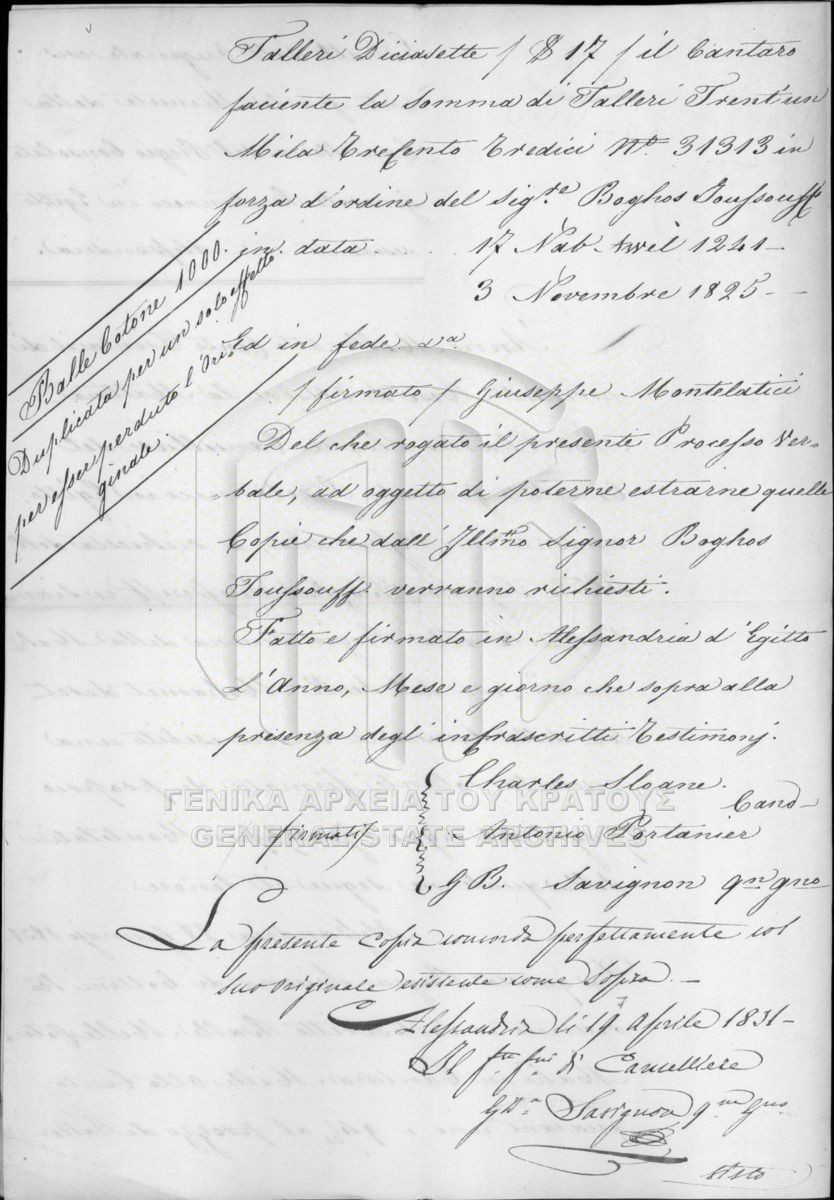 Talleri Diciasette / $ 17 / il Cantaro
faciente la somma di Talleri Trent'un
Mila Trecento Tredici No. 31313 in
forza d'ordine del Sigre Boghos Joussouff
in data 17 Rab-Awèl 1241 -
3 Novembre 1825 -
Balle Cotone 1000.
Duplicata per un solo effetto
per esser perduto l'Ori-
ginale
Ed in fede &a
/ firmato / Giuseppe Montelatici
Del che rogato il presente Processo Ver-
bale, ad oggetto di poterne estrarne quelle
Copie che dall' Illmo Signor Boghos
Joussouff verranno richiesti.
Fatto e firmato in Alessandria d'Egitto
L'Anno, Mese e giorno che sopra alla
presenza degl' infrascritti Testimonj.
Charles Sloane.
firmati Antonio Portanier Canc-
G B. Savignon qm gmo
ΓΕΝΙΚΑ ΑΡΧΕΙΑ ΤΟΥ ΚΡΑΤΟΥΣ
GENERAL STATE ARCHIVES
La presente Copia concorda perfettamente col
suo originale esistente come Sopra. -
Alessandria li 19 Aprile 1831 -
Il di Cancelliere
Savignon qm Gmo